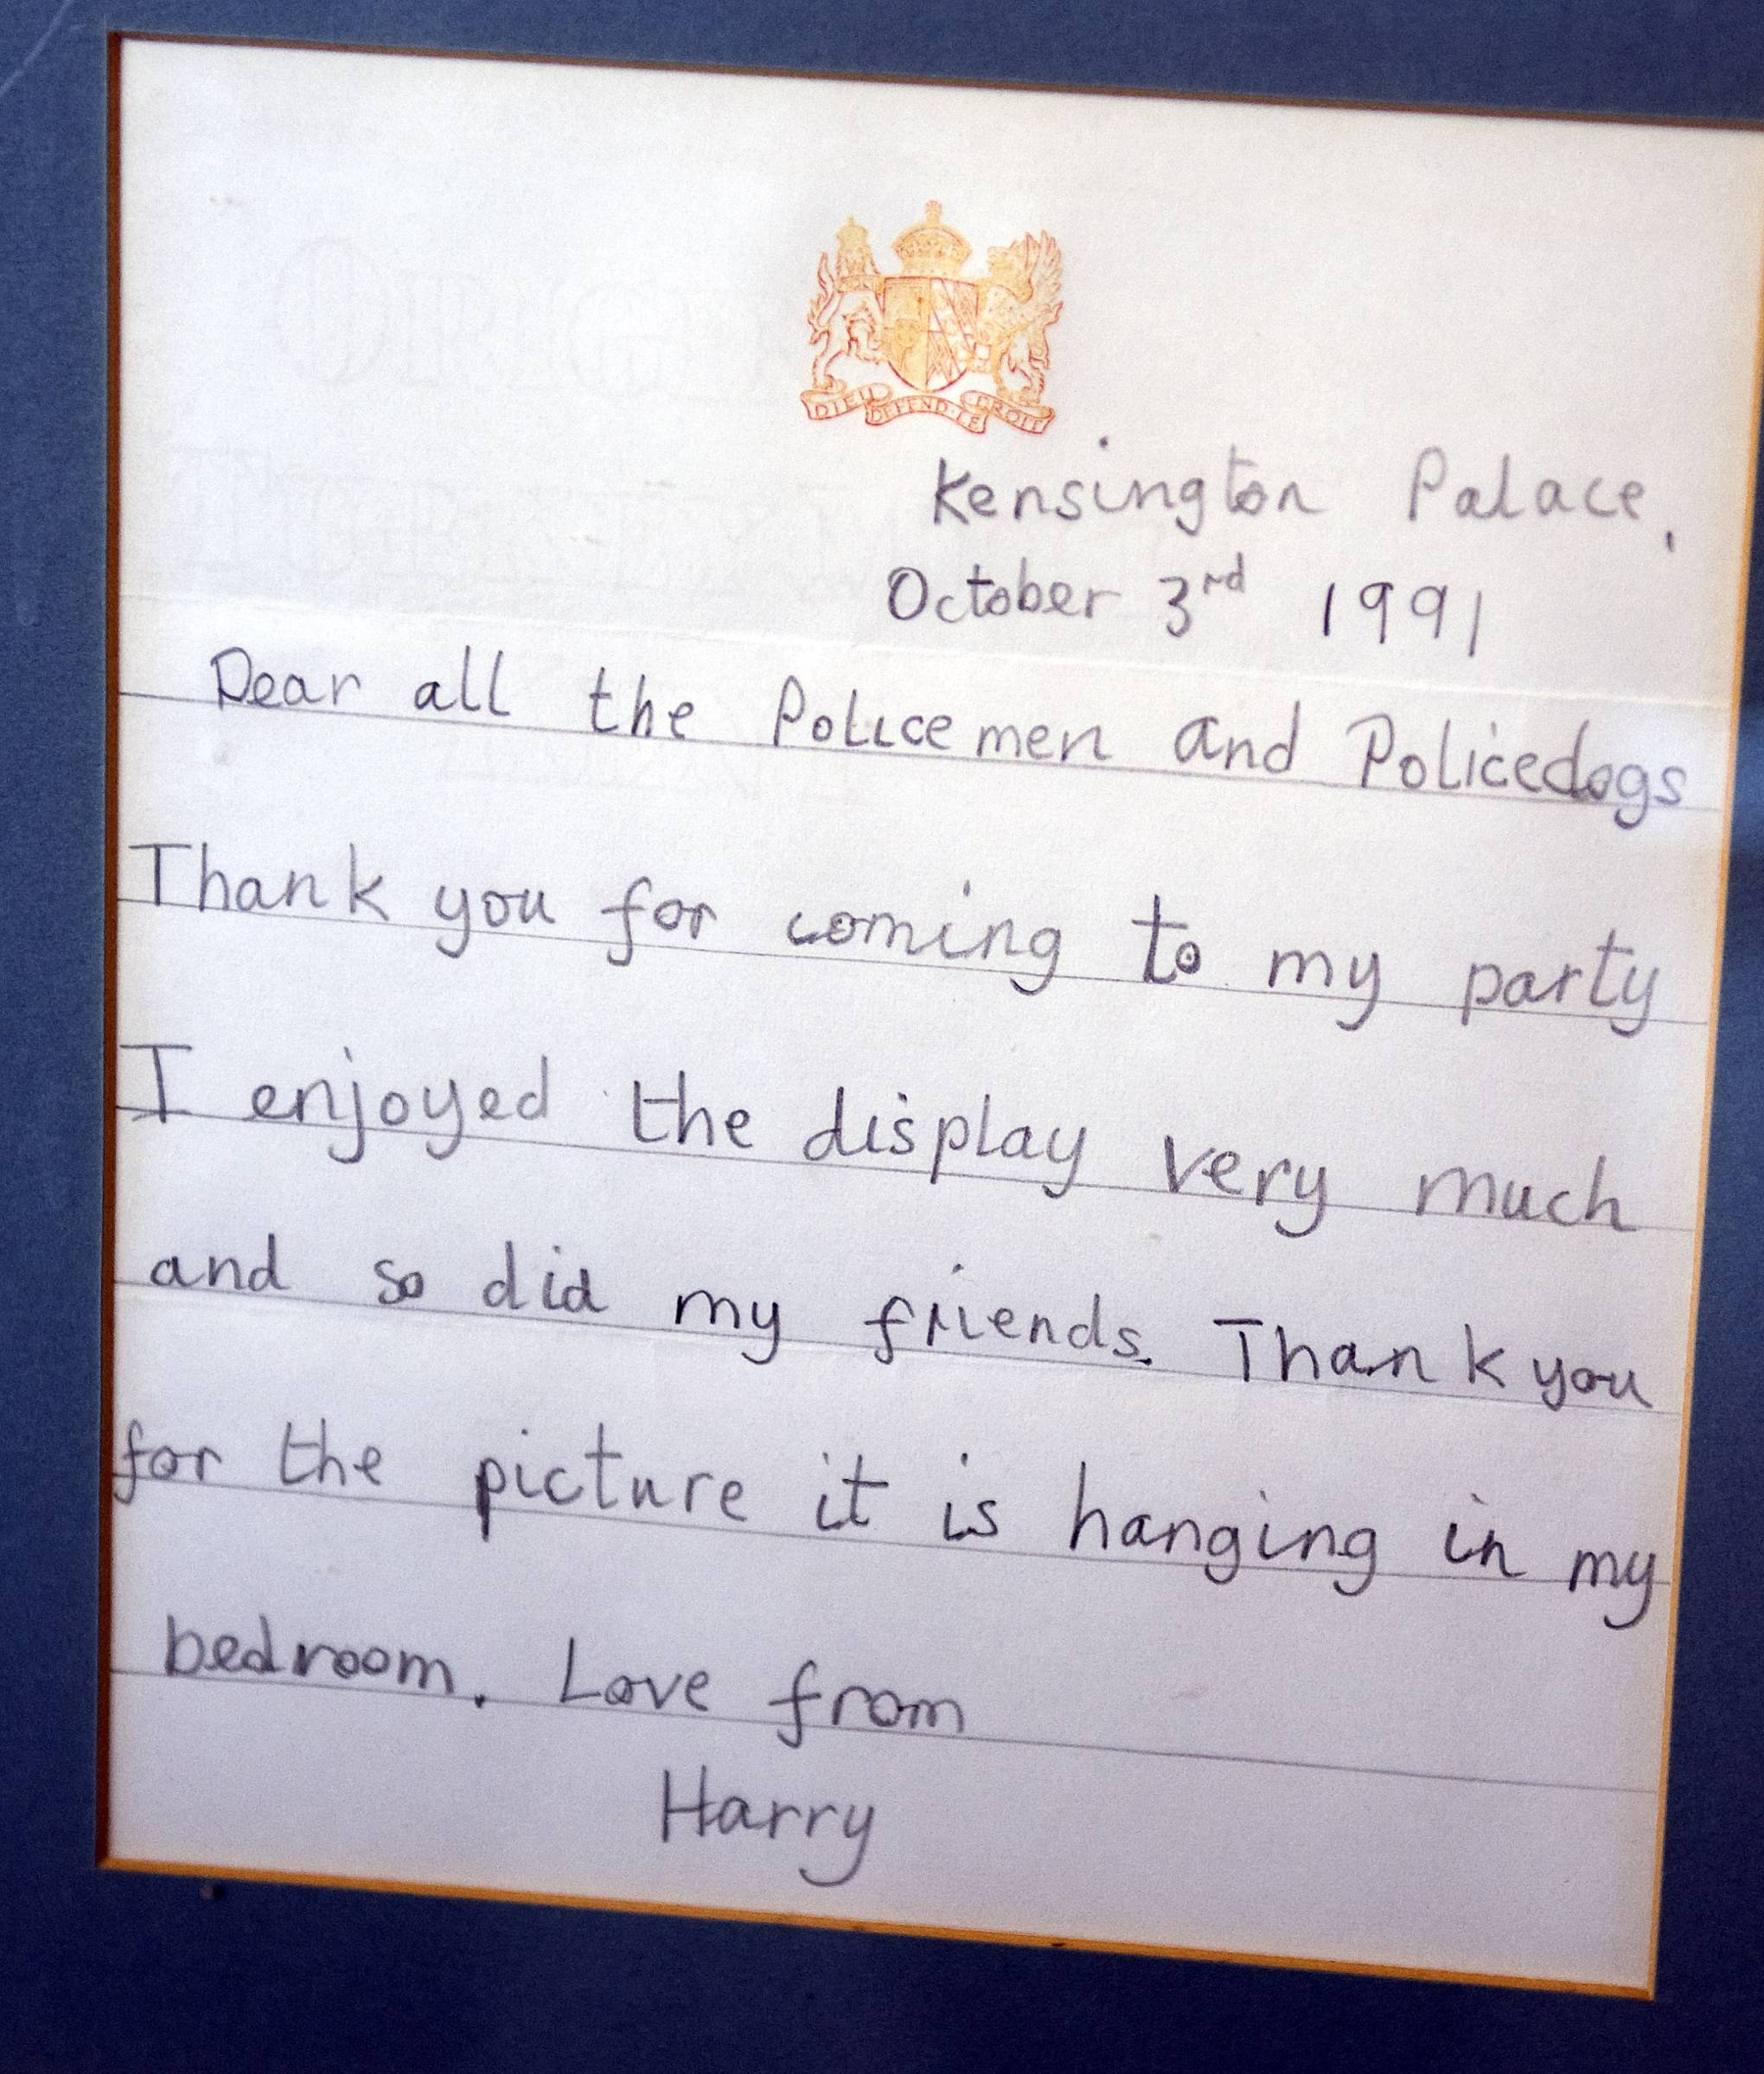 DIEU DEFEND LE DROIT
Kensington Palace,
October 3rd 1991
Dear all the Policemen and Policedogs
Thank you for coming to my party
I enjoyed the display very much
and so did my friends. Thank you
for the picture it is hanging in my
bedroom. Love from
Harry